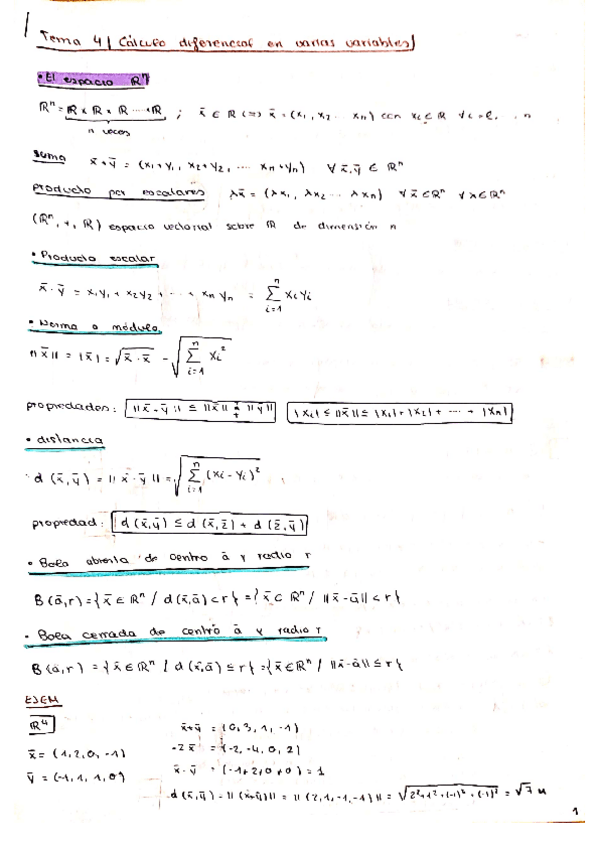 Tema 4 | Cálculo diferencial en varias variables |
• El espacio ℝⁿ
ℝⁿ = ℝ x ℝ x ℝ ... x ℝ ; x̄ ∈ ℝ (=) x̄ = (x₁, x₂ ... xₙ) con xᵢ ∈ ℝ ∀ i
n veces
suma x̄+ȳ = (x₁+y₁, x₂+y₂, ... xₙ+yₙ) ∀ x̄,ȳ ∈ ℝⁿ
producto por escalares λx̄ = (λx₁, λx₂ ... λxₙ) ∀ x̄ ∈ ℝⁿ ∀ λ ∈ ℝⁿ
(ℝⁿ, +, ℝ) espacio vectorial sobre ℝ de dimensión n
• Producto escalar
x̄ · ȳ = x₁y₁ + x₂y₂ + ... + xₙyₙ = Σⁿᵢ₌₁ xᵢyᵢ
• Norma o módulo
||x̄|| = |x̄| = √(x̄ · x̄) - √(Σⁿᵢ₌₁ xᵢ²)
propiedades: ||x̄ + ȳ|| ≤ ||x̄|| + ||ȳ|| |xᵢ| ≤ ||x̄|| ≤ |x₁| + |x₂| + ... + |xₙ|
• distancia
d (x̄,ȳ) = || x̄ - ȳ || = √(Σⁿᵢ₌₁ (xᵢ - yᵢ)²)
propiedad: d (x̄,ȳ) ≤ d (x̄,z̄) + d (z̄,ȳ)
• Bola abierta de centro ā y radio r
B (ā,r) = { x̄ ∈ ℝⁿ / d(x̄,ā) < r } = { x̄ ⊂ ℝⁿ / ||x̄ - ā|| < r }
• Bola cerrada de centro ā y radio r
B (ā,r) = { x̄ ∈ ℝⁿ / d (x̄,ā) ≤ r } = { x̄ ∈ ℝⁿ / ||x̄-ā|| ≤ r }
EJEM
ℝ⁴
x̄+ȳ = (0, 3, 1, -1)
x̄ = (1, 2, 0, -1) -2x̄ = (-2, -4, 0, 2)
ȳ = (-1, 1, 1, 0) x̄ · ȳ = (-1+2+0+0) = 1
d(x̄,ȳ) = || (x̄+ȳ)|| = || (2, 1, -1, -1) || = √(2²+1²+(-1)²+(-1)²) = √7 u
1